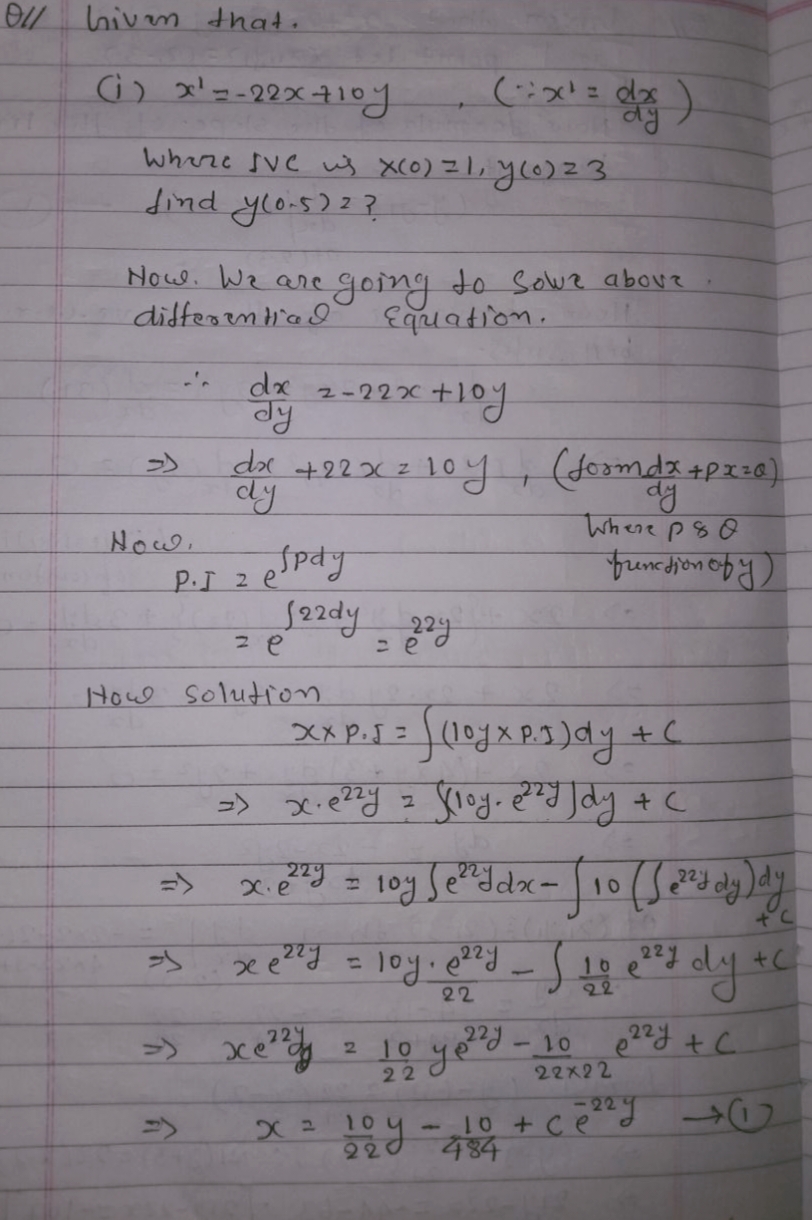 Q// Given that.
(i) x' = -22x + 10y , (∵ x' = dx/dy)
Where IVC is x(0) = 1, y(0) = 3
find y(0.5) = ?
Now. We are going to solve above
differential Equation.
∴ dx/dy = -22x + 10y
⇒ dx/dy + 22x = 10y , (form dx/dy + Px = Q)
Where P & Q
function of y)
Now,
P.I = e^∫Pdy
= e^∫22dy = e^22y
Now solution
x × P.I = ∫(10y × P.I)dy + C
⇒ x.e^22y = ∫(10y. e^22y)dy + C
⇒ x.e^22y = 10y ∫e^22y dx - ∫10 (∫e^22y dy)dy + C
⇒ x e^22y = 10y. e^22y/22 - ∫ 10/22 e^22y dy + C
⇒ x e^22y = 10/22 y e^22y - 10/22×22 e^22y + C
⇒ x = 10/22 y - 10/484 + C e^-22y → (1)